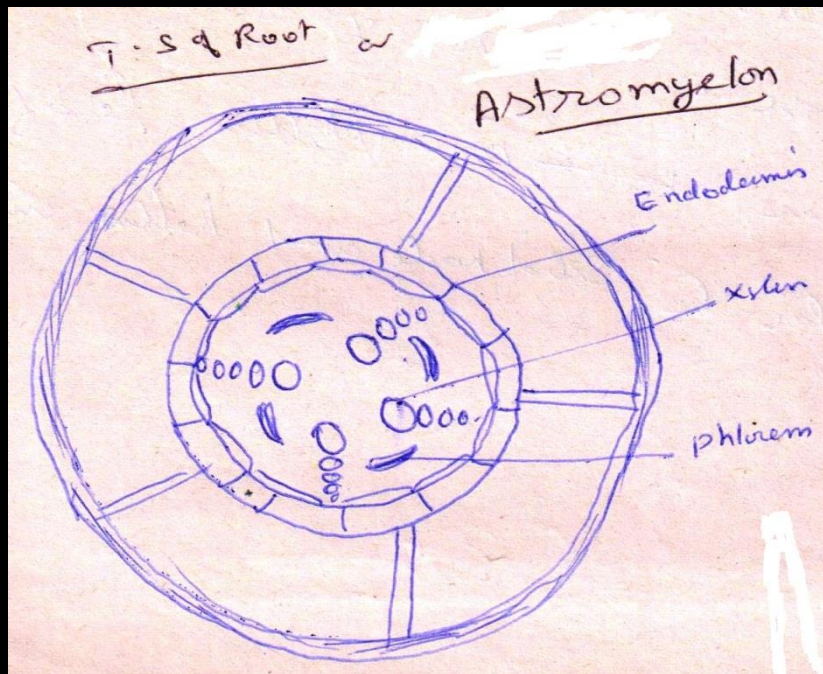 T. S of Root or
Astromyelon
Endodermis
xylem
phloem